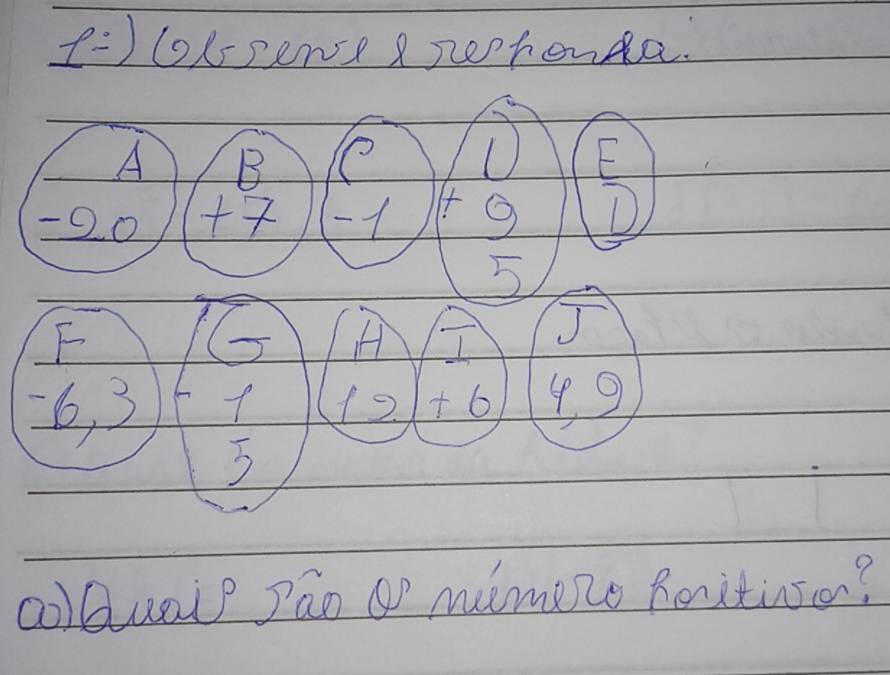 1-) Observe e responda:
A B C D E
-20 +7 -1 + 9 D
5
F G H I J
-6,3 - 1 12 +6 4,9
5
a) Quais são os número positivos?